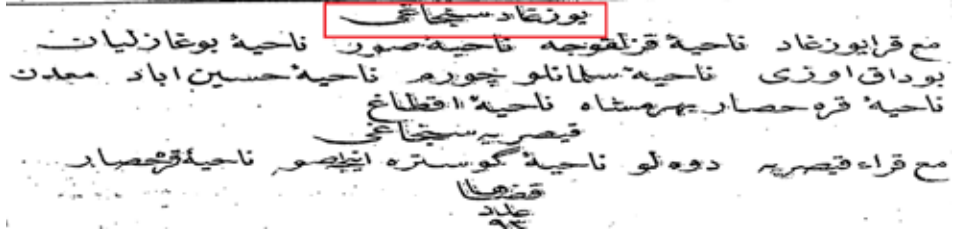 يوزغاد سنجاغى
مع قرا يوزغاد ناحيۀ قزلقوجه ناحيۀ صور ناحيۀ بوغازليان
بوداق اوزى ناحيۀ سلمانلو چورم ناحيۀ حسين اباد معدن
ناحيۀ قره حصار بهرمشاه ناحيۀ اقطاغ
قيصريه سنجاغى
مع قراء قيصريه دوه لو ناحيۀ كوستره اينجه صو ناحيۀ قرەحصار
قضا
عدد
٩٣